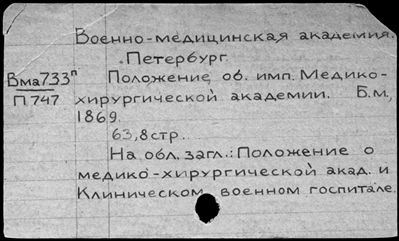 Военно-медицинская академия.
Петербург.
Вма733п Положение об. имп. Медико-
П747 хирургической академии. Б.м.,
1869.
63,8стр.
На обл. загл.: Положение о
медико-хирургической акад. и
Клиническом военном госпитале.